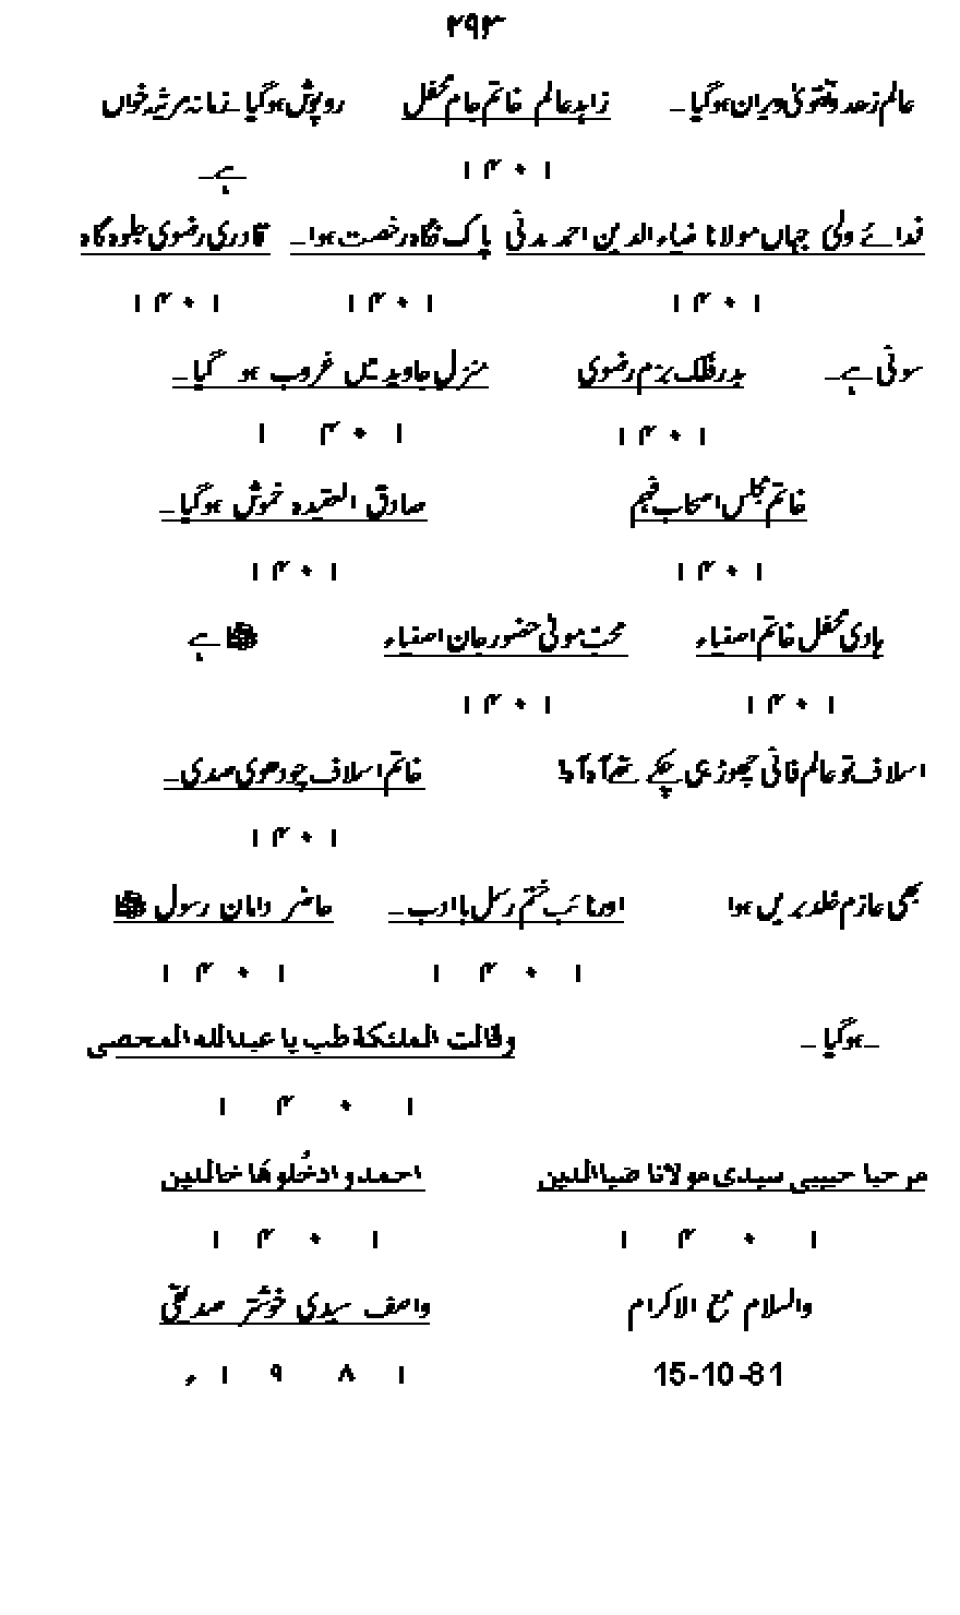 ۲۹۳
عالم زهد و تقویٰ ویران ہوگیا۔ زاہد عالم خاتم جام محفل روپوش ہوگیا۔ زمانہ مرثیہ خواں
۱۴۰۱ ہے۔
فدائے ولی جہاں مولانا ضیاء الدین احمد مدنی پاک نگاہ رخصت ہوا۔ قادری رضوی جلوہ گاہ
۱۴۰۱ ۱۴۰۱ ۱۴۰۱
سونی ہے۔ بدر فلک بزم رضوی منزل جاوید میں غروب ہو گیا۔
۱۴۰۱ ۱۴۰۱
خاتم مجلس اصحاب صادق العقیدہ خموش ہوگیا۔
۱۴۰۱ ۱۴۰۱
ہادی محفل خاتم اصفیاء محب مولیٰ حضور جان اصفیاء ﷺ ہے
۱۴۰۱ ۱۴۰۱
اسلاف تو عالم فانی چھوڑ ہی چکے تھے آہ آہ! خاتم اسلاف چودھوی صدی۔
۱۴۰۱
بھی عازم خلد بریں ہوا اور نائب ختم رسل با ادب۔ حاضر دامان رسول ﷺ
۱۴۰۱ ۱۴۰۱
۔ہوگیا۔ وقالت الملئکة طب یا عبدالله المحصی
۱۴۰۱
مرحبا حبیبی سیدی مولانا ضیاالدین احمد و ادخُلوھَا خالدین
۱۴۰۱ ۱۴۰۱
والسلام مع الاکرام واصف سیدی خوشتر صدیقی
15-10-81 ۱۹۸۱ء